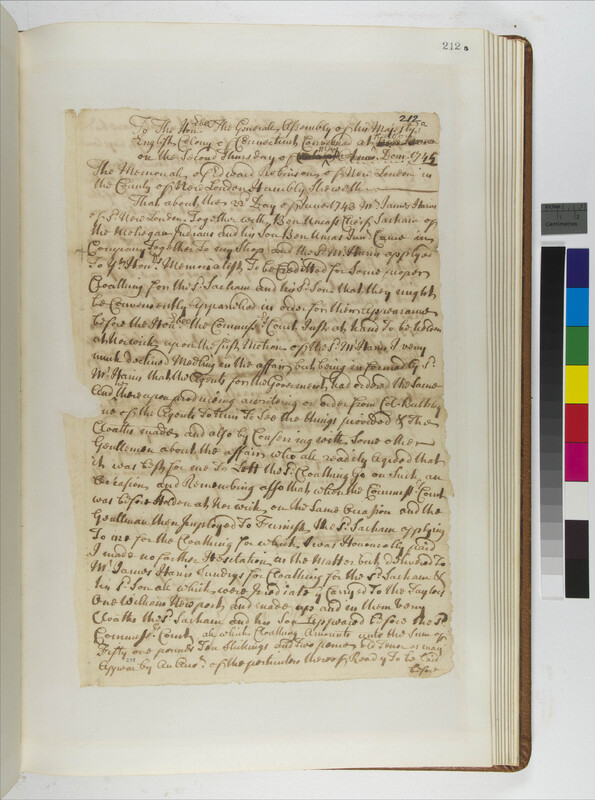 212 a
212a
To The Honble The General Assembly of his Majestys
English Colony of Connecticut Convened at
on the Second Thursday of May Anno Dom. 1745
The Memorial of Edward Robinson of New London in
the County of New London Humbly Sheweth
That about the 23d Day of June 1743 Mr James Harris
of sd New London Together with Ben Uncas Cheif Sachim of
the Mohegan Indians and his Son Ben Uncas Junr Came in
Company Together To my Shop and the sd Mr Harris applyed
To yr Honrs Memorialist To be Creditted for Some proper
Cloathing for the sd Sacham and his sd Son that they might
be Conveniently Apparelled in order for their appearance
before the Honble the Commissrs Court Just at hand To be holden
at Norwich upon the first Motion of the sd Mr Harris I very
much declined Medling in the affair but being informed by sd
Mr Harris that the Agents for the Government had ordered the Same
And thereupon producing a writing or order from Col. Bulkley
one of the Agents To him To See the things provided & the
Cloaths made and also by Conferring with Some other
Gentlemen about the affair who all readily Agreed that
it was best for me To Lett the sd Cloathing go on Such an
Occasion and Remembring also that when the Commissrs Court
was before Holden at Norwich on the Same Occasion and the
Gentleman then Imployed To Furnish the sd Sacham applying
To me for the Cloathing for which I was Honourably paid
I made no farther Hesitation in the Matter but delivered To
Mr James Harris Sundrys for Cloathing for the sd Sacham &
his sd Son all which were Carryed To the Taylors
One William Newport and made up and in them very
Cloaths the sd Sacham and his Son Appeared before the sd
Commissrs Court all which Cloathing Amounts unto the Sum of
Fifty one pounds Ten Shillings and two pence old Tenor as may
Appear by an Accot of the particulars thereof Ready To be Laid
before